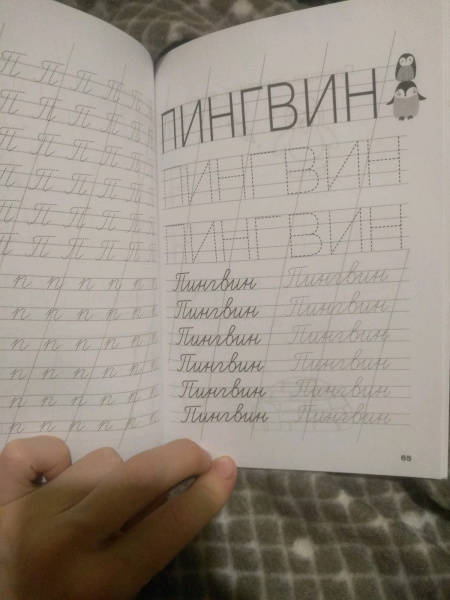 П П П П П
П П П П П
П П П П П
П П П П П
П П П П П
П П П П П
п п п п п п
п п п п п п
п п п п п п
п п п п п п
п п п п п п
п п п п п п
ПИНГВИН
ПИНГВИН
ПИНГВИН
Пингвин Пингвин
Пингвин Пингвин
Пингвин Пингвин
Пингвин Пингвин
Пингвин Пингвин
Пингвин Пингвин
65